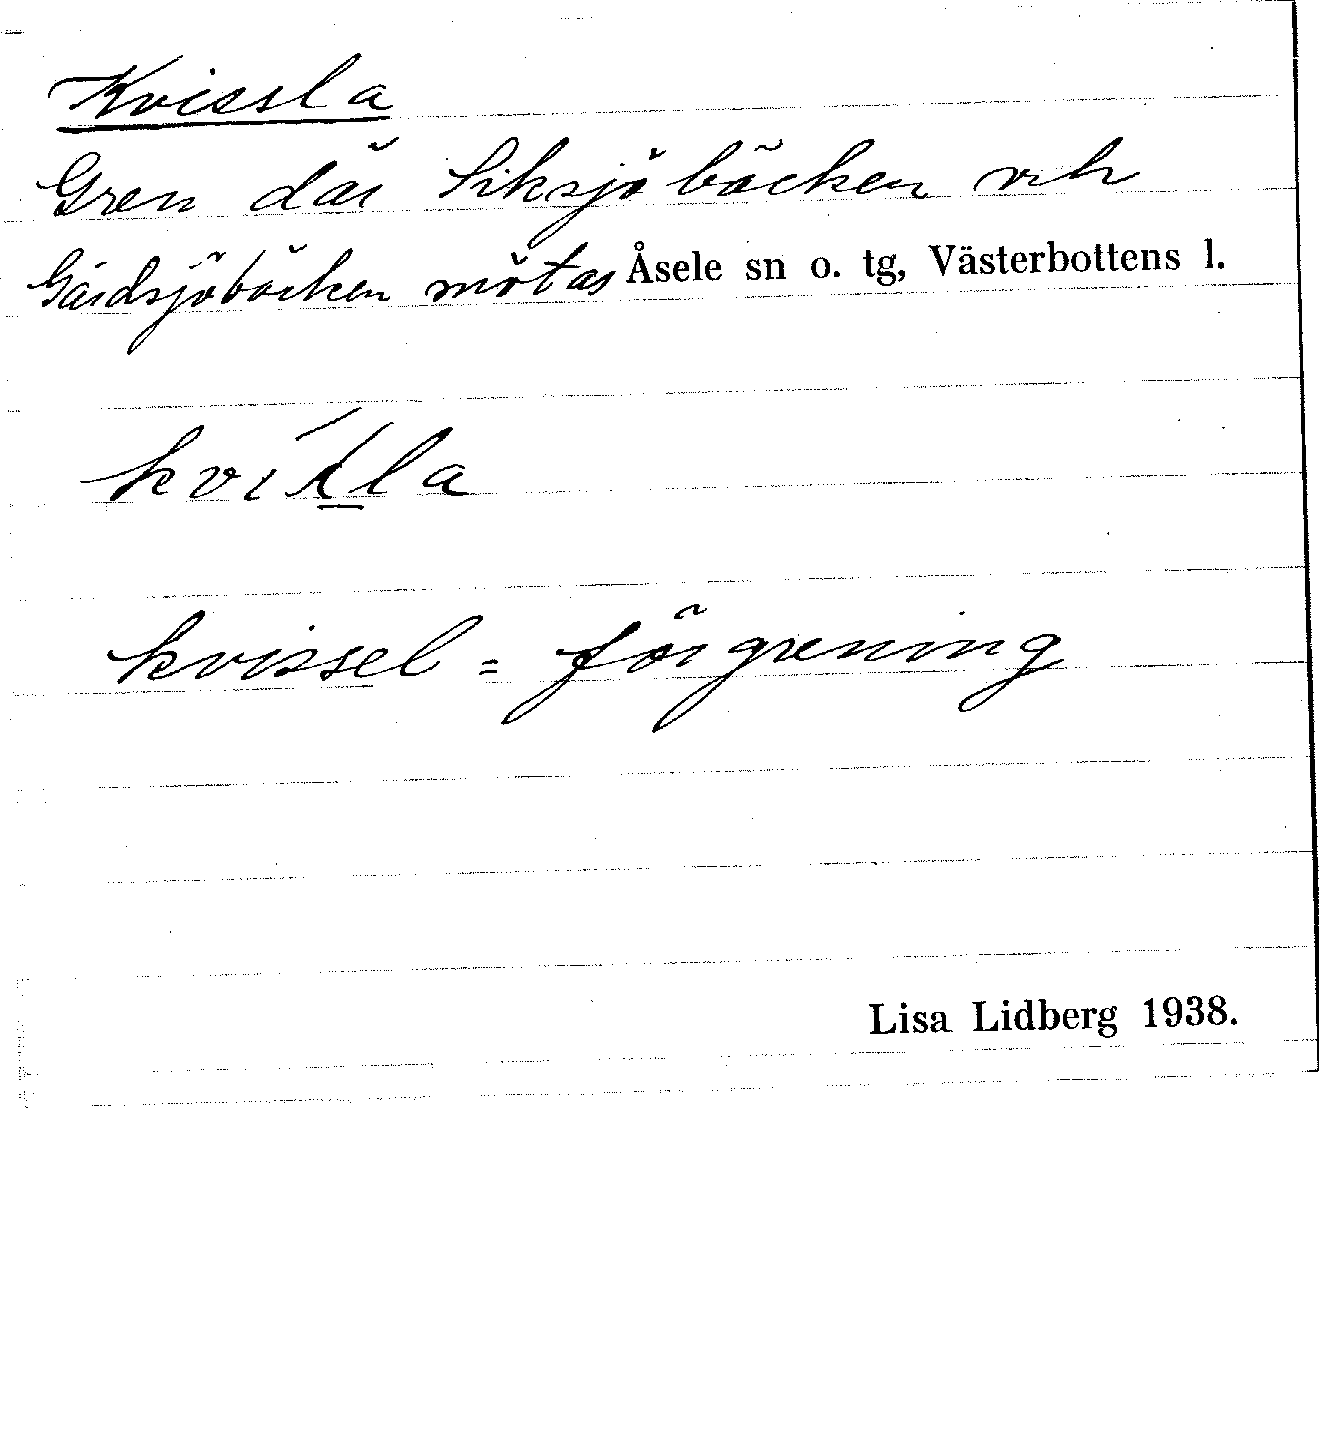 Kvissla
Gren där Siksjöbäcken och
Gårdsjöbäcken mötas Åsele sn o. tg, Västerbottens l.
kvissel = förgrening
Lisa Lidberg 1938.